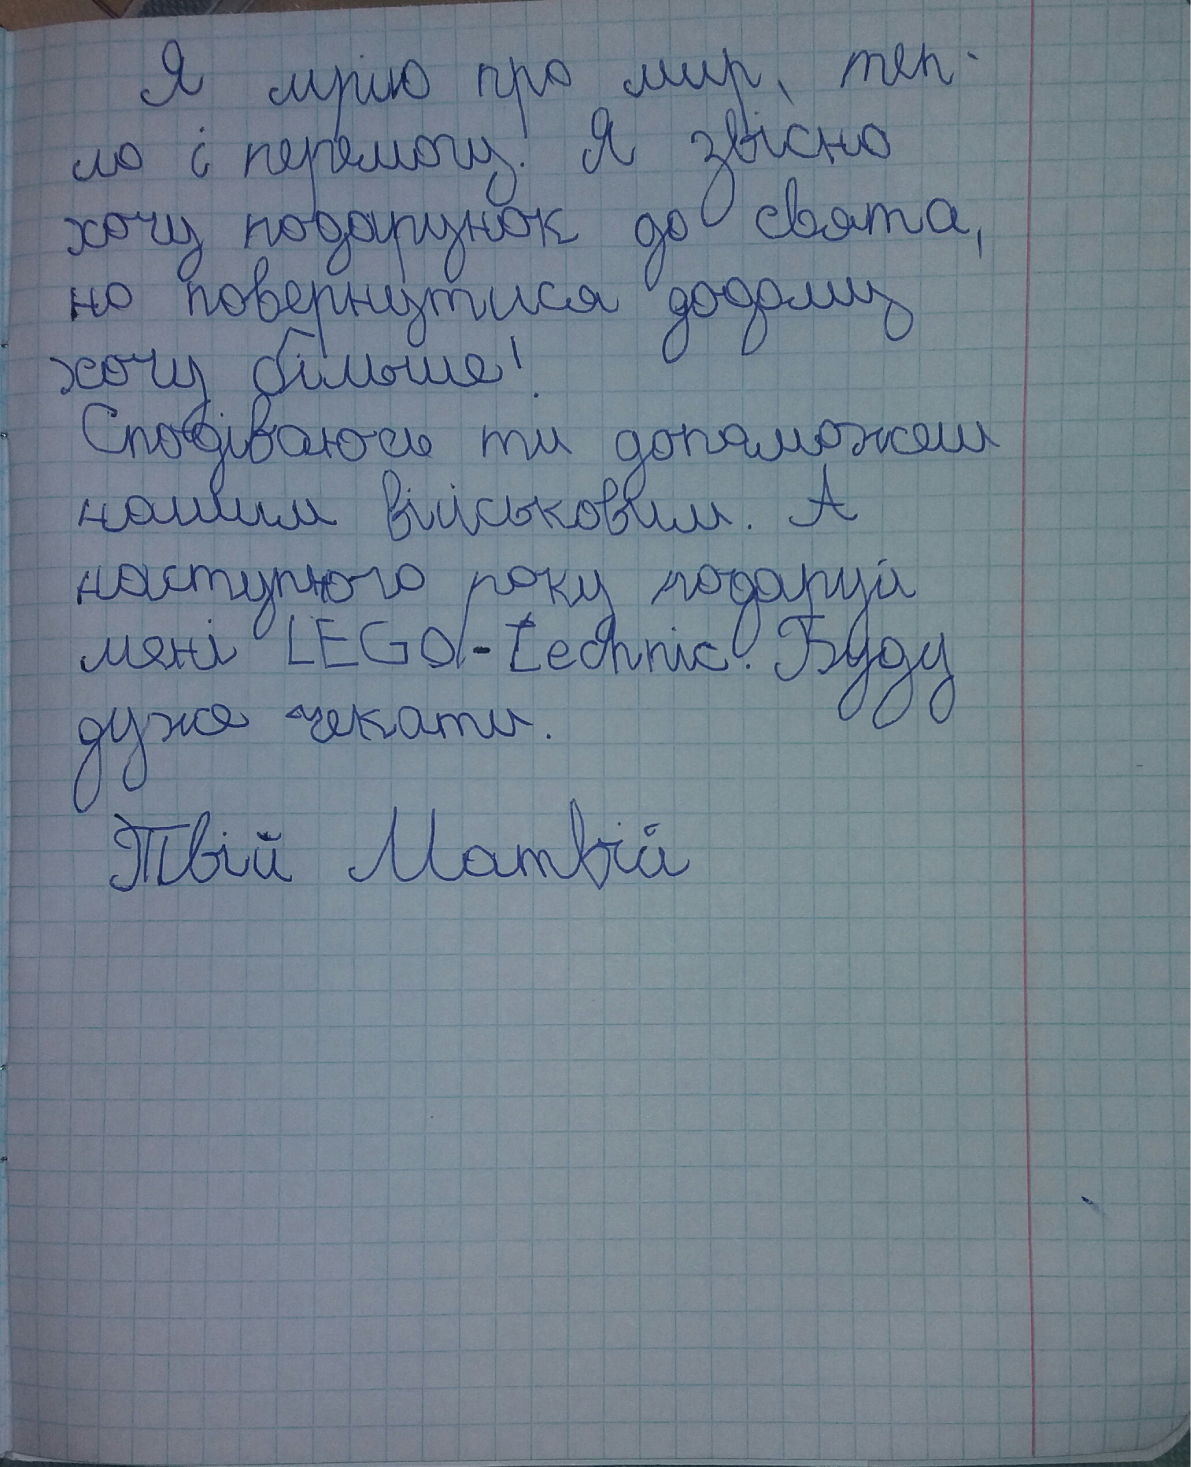 Я мрію про мир, теп-
ло і перемогу. Я звісно
хочу подарунок до свята,
но повернутися додому
хочу більше!
Сподіваюсь ти допоможеш
нашим військовим. А
наступного року подаруй
мені LEGO-technic. Буду
дуже чекати.
Твій Матвій